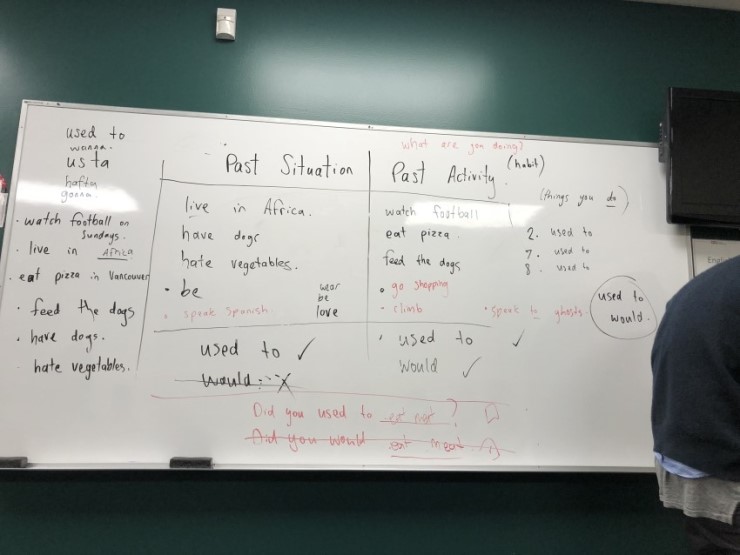 used to
wanna.
usta
hafta
gonna.
· watch football on
Sundays.
· live in Africa
· eat pizza in Vancouver
· feed the dogs
· have dogs.
· hate vegetables.
Past Situation
live in Africa.
have dogs
hate vegetables.
· be
· speak spanish.
wear
be
love
used to ✓
would X
what are you doing?
Past Activity. (habit)
(things you do)
watch football
eat pizza
feed the dogs
· go shopping
- climb
· speak to ghosts.
2. used to
7. used to
8. used to
used to
would.
· used to ✓
would ✓
Did you used to ?
Did you would eat meat